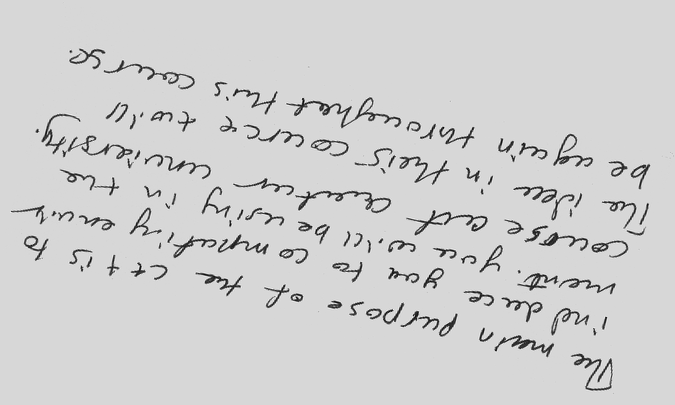 The main purpose of the is to
induce you to compating envir
ment. you will be using in the
couose at university.
The idea in theis cource twill
be again throughat this course.